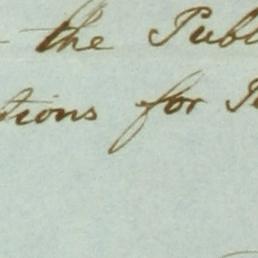 the Publ
tions for